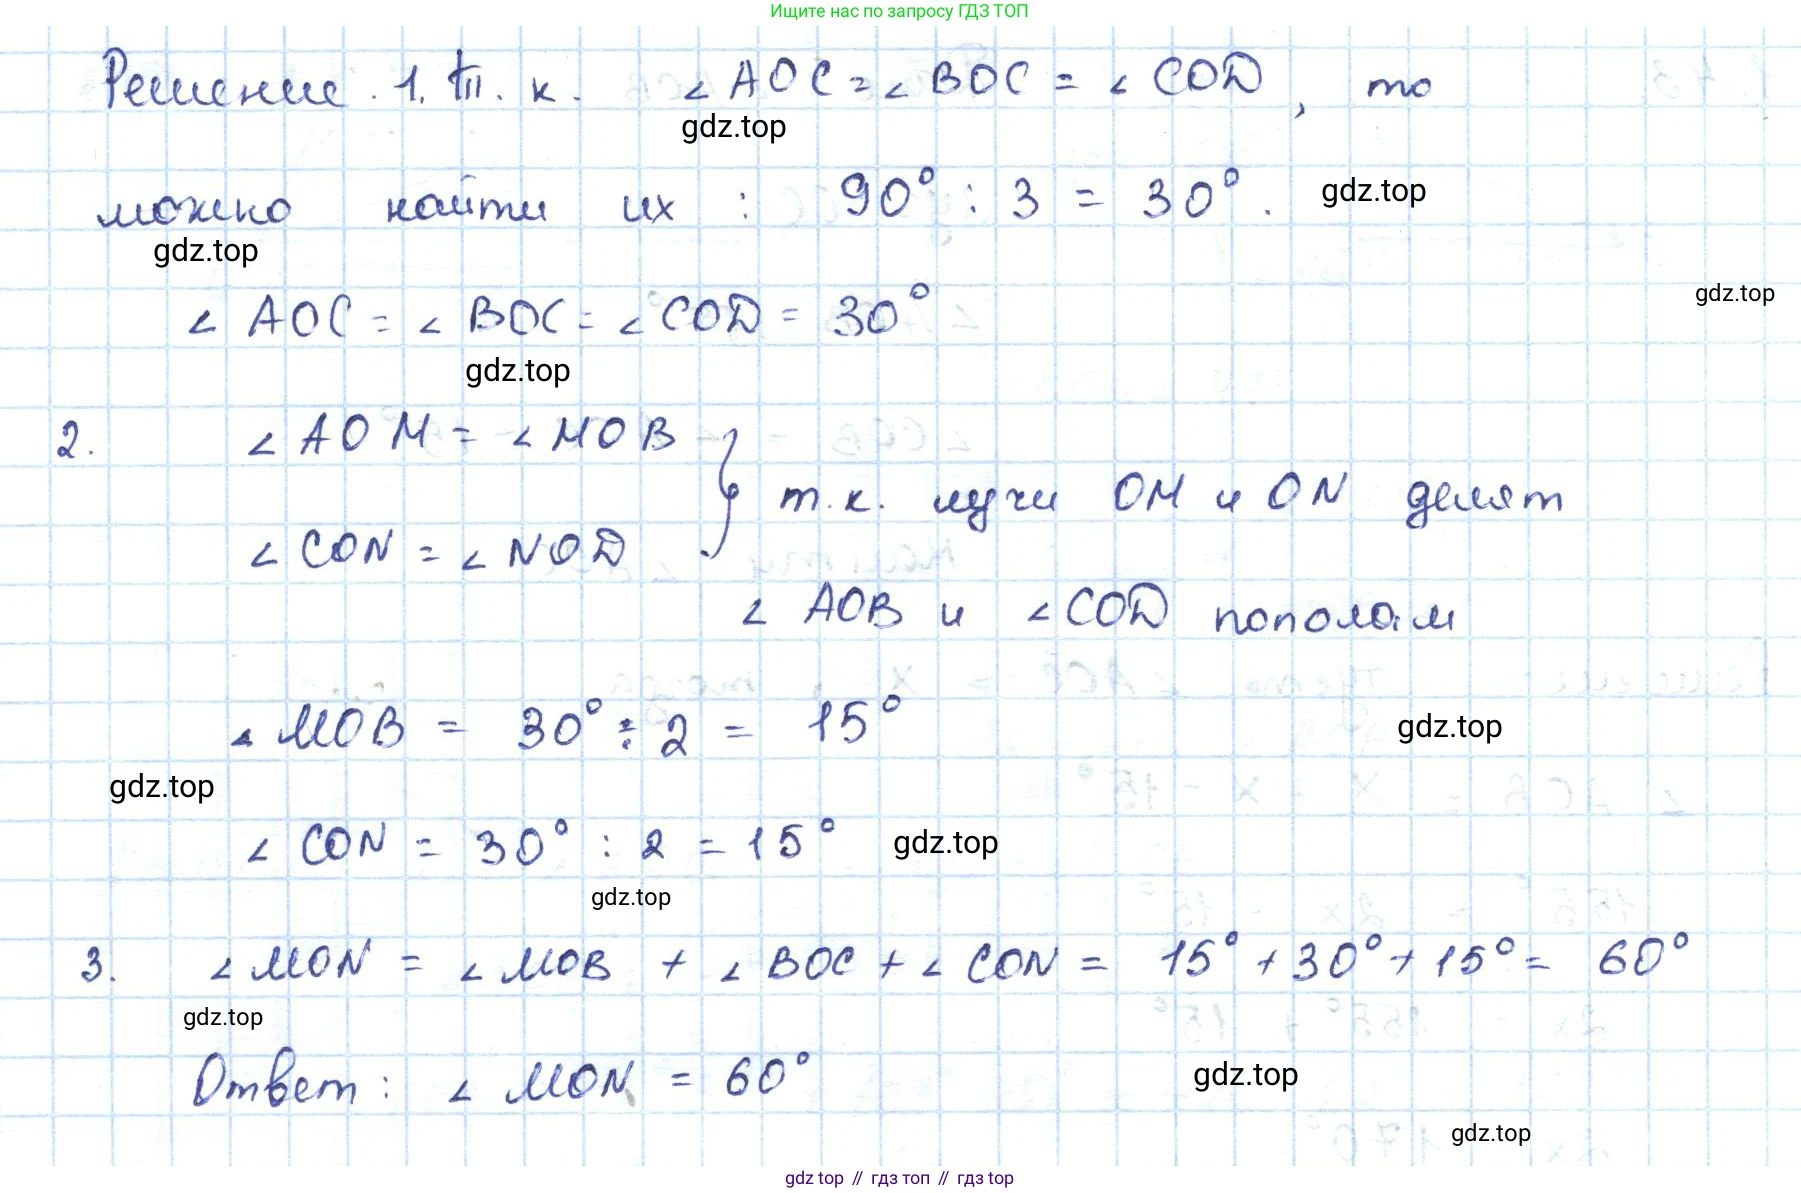 Ищите нас по запросу ГДЗ ТОП
Решение. 1. Т. к. ∠ AOC = ∠ BOC = ∠ COD, то
gdz.top
можно найти их : 90° : 3 = 30°.
gdz.top
gdz.top
gdz.top
∠ AOC = ∠ BOC = ∠ COD = 30°
gdz.top
2. ∠ AOM = ∠ MOB
т.к. лучи OM и ON делят
∠ CON = ∠ NOD
∠ AOB и ∠ COD пополам
∠ MOB = 30° : 2 = 15°
gdz.top
gdz.top
∠ CON = 30° : 2 = 15°
gdz.top
gdz.top
3. ∠ MON = ∠ MOB + ∠ BOC + ∠ CON = 15° + 30° + 15° = 60°
gdz.top
Ответ: ∠ MON = 60°
gdz.top
gdz.top
gdz top // гдз топ // гдз top